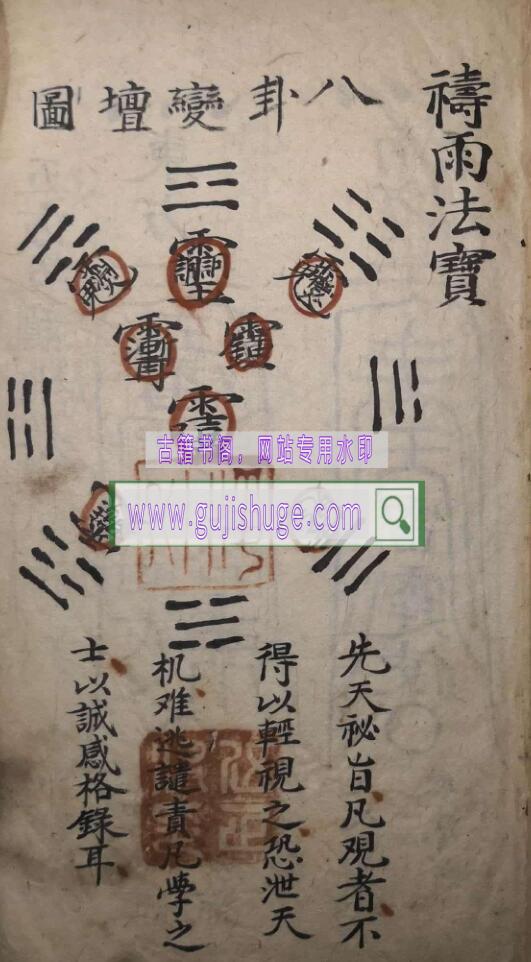 禱雨法寶
八卦變壇圖
古籍书阁，网站专用水印
www.gujishuge.com
先天祕旨凡观者不
得以輕視之恐泄天
机难逃譴責凡學之
士以誠感格錄耳